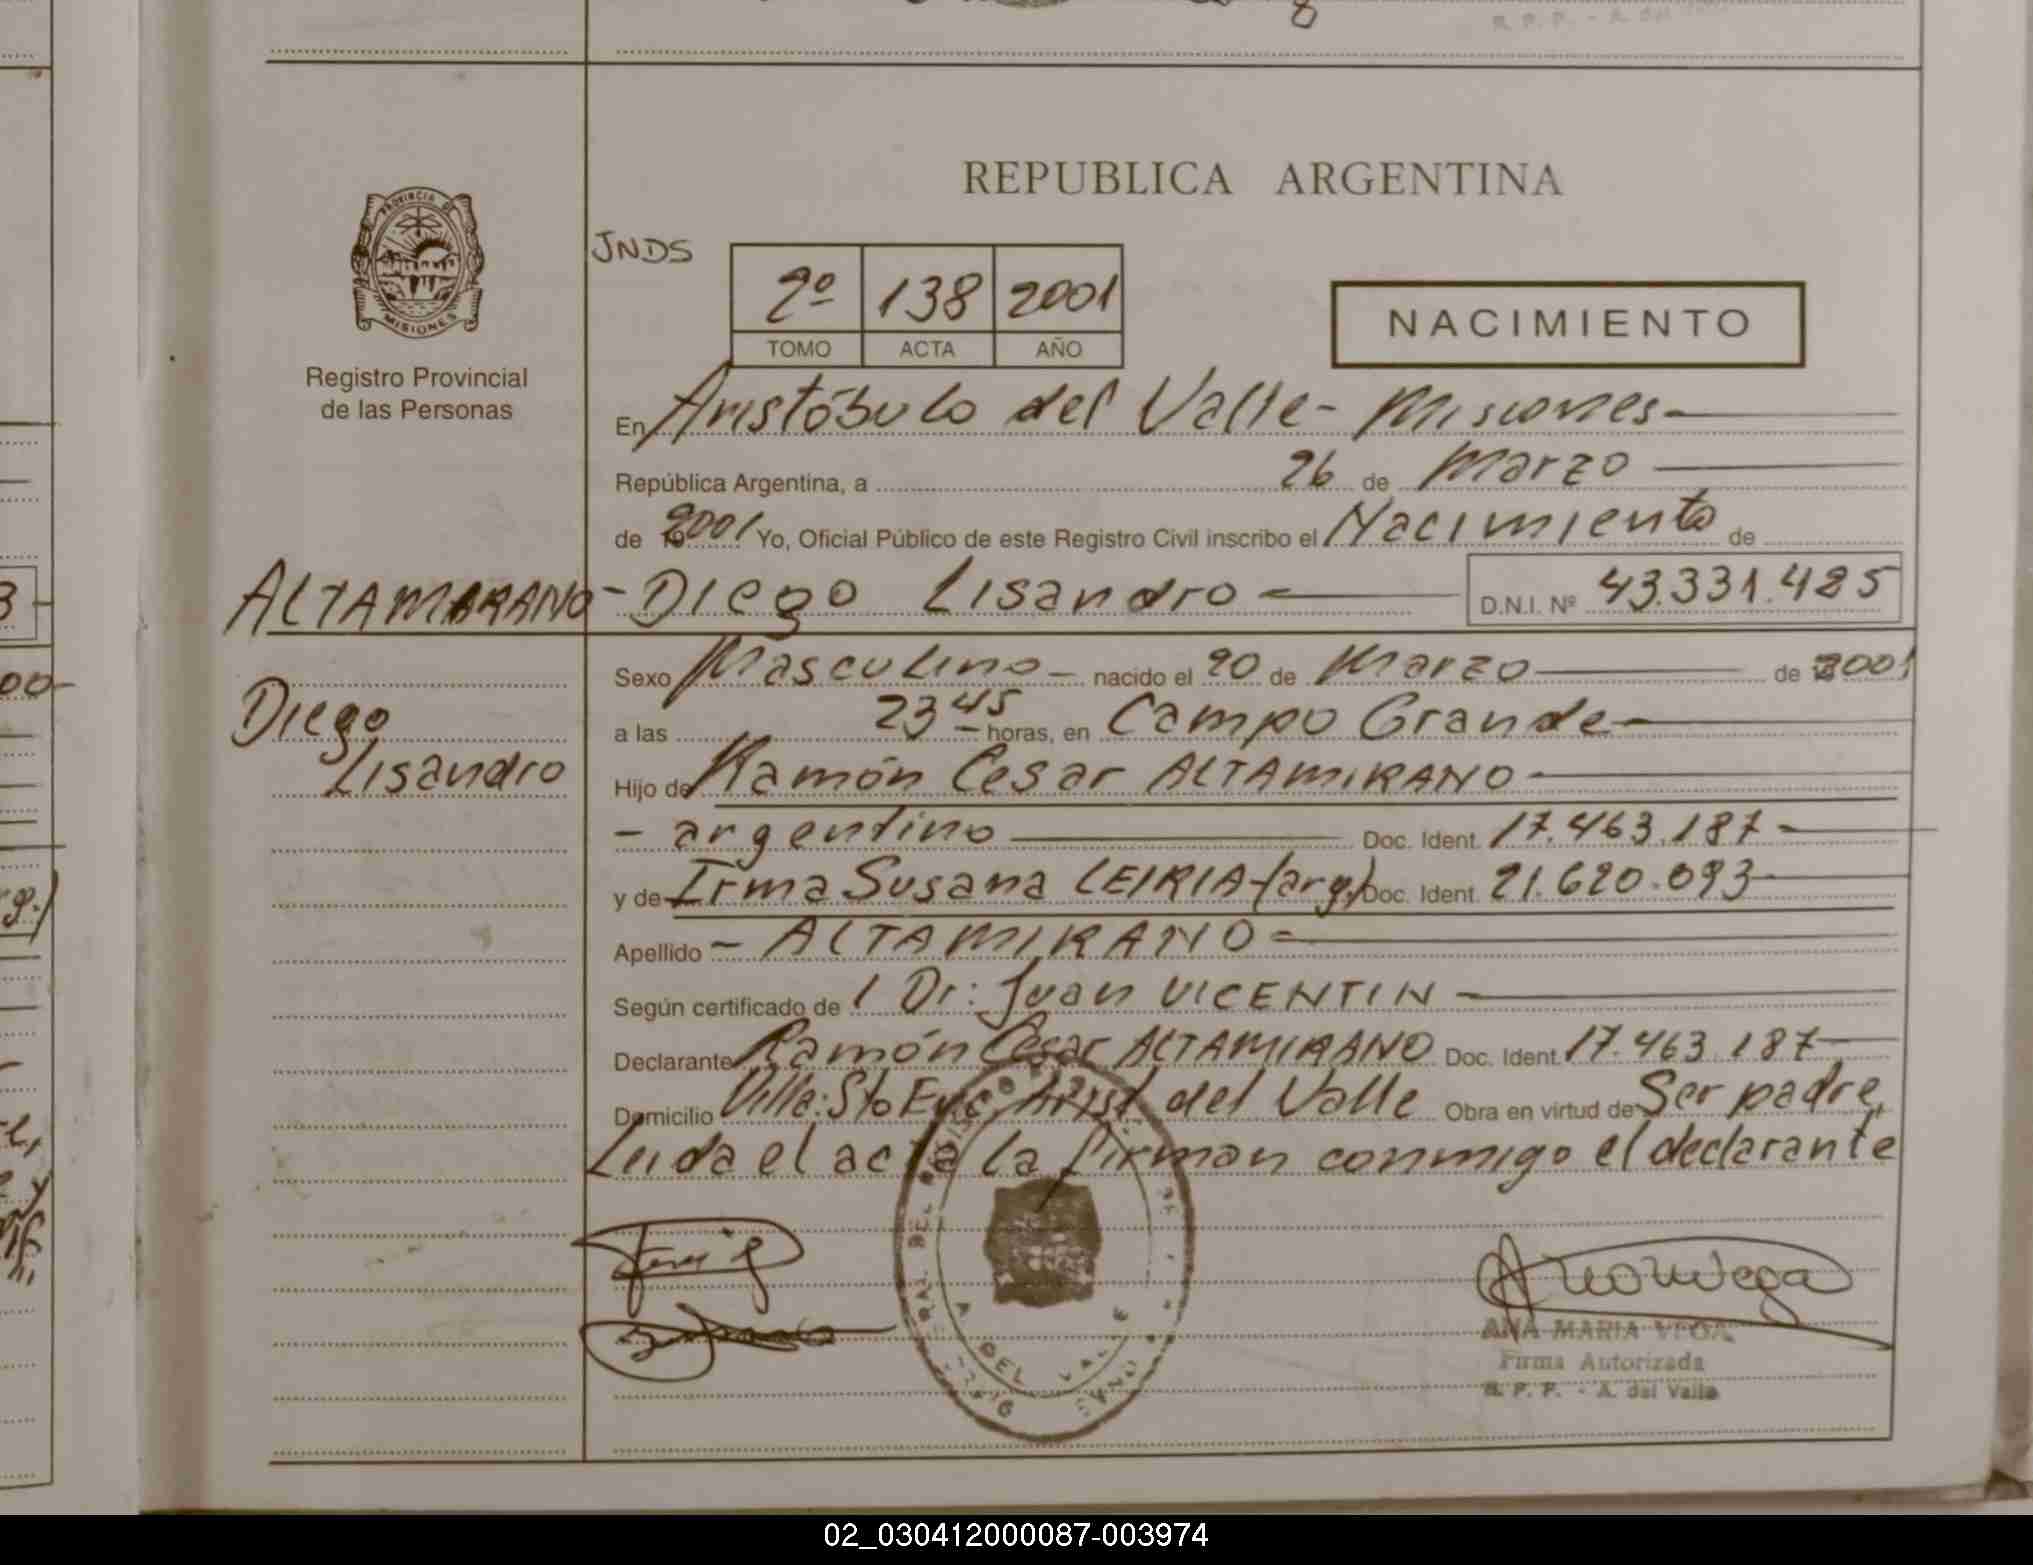 REPUBLICA ARGENTINA
PROVINCIA DE
MISIONES
Registro Provincial
de las Personas
JNDS
2º 138 2001
TOMO ACTA AÑO
NACIMIENTO
En Aristóbulo del Valle - Misiones
República Argentina, a 26 de Marzo
de 2001 Yo, Oficial Público de este Registro Civil inscribo el Nacimiento de
ALTAMIRANO - Diego Lisandro D.N.I. Nº 43.331.485
Sexo Masculino - nacido el 20 de Marzo de 2001
Diego
a las 23 45 horas, en Campo Grande
Lisandro
Hijo de Ramón Cesar ALTAMIRANO
- argentino Doc. Ident. 17.463.187
y de Irma Susana LEIRIA - (arg.) Doc. Ident. 21.620.093
Apellido - ALTAMIRANO
Según certificado de / Dr: Juan VICENTIN
Declarante Ramón Cesar ALTAMIRANO Doc. Ident. 17.463.187
Domicilio Villa: Sto Arist del Valle Obra en virtud de Ser padre,
Leida el acta la firman conmigo el declarante
A. DEL VALLE
ANA MARIA VEGA
Firma Autorizada
R. P. P. - A. del Valle
02_030412000087-003974